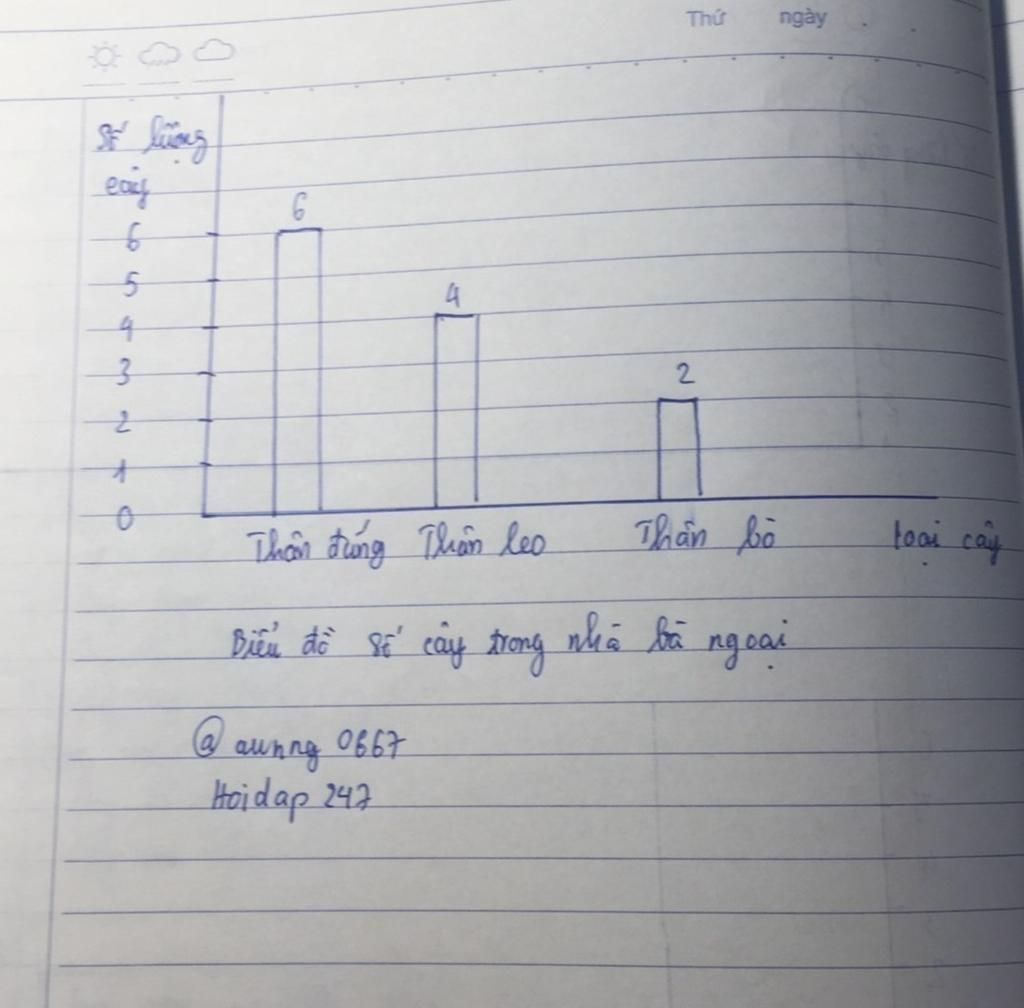 Thứ ngày
Số lượng
cây
6
6
5
4
4
3
2
2
1
0
Thân đứng Thân leo Thân bò loại cây
Biểu đồ số cây trong nhà bà ngoại
@aunng 0667
Hoidap 247